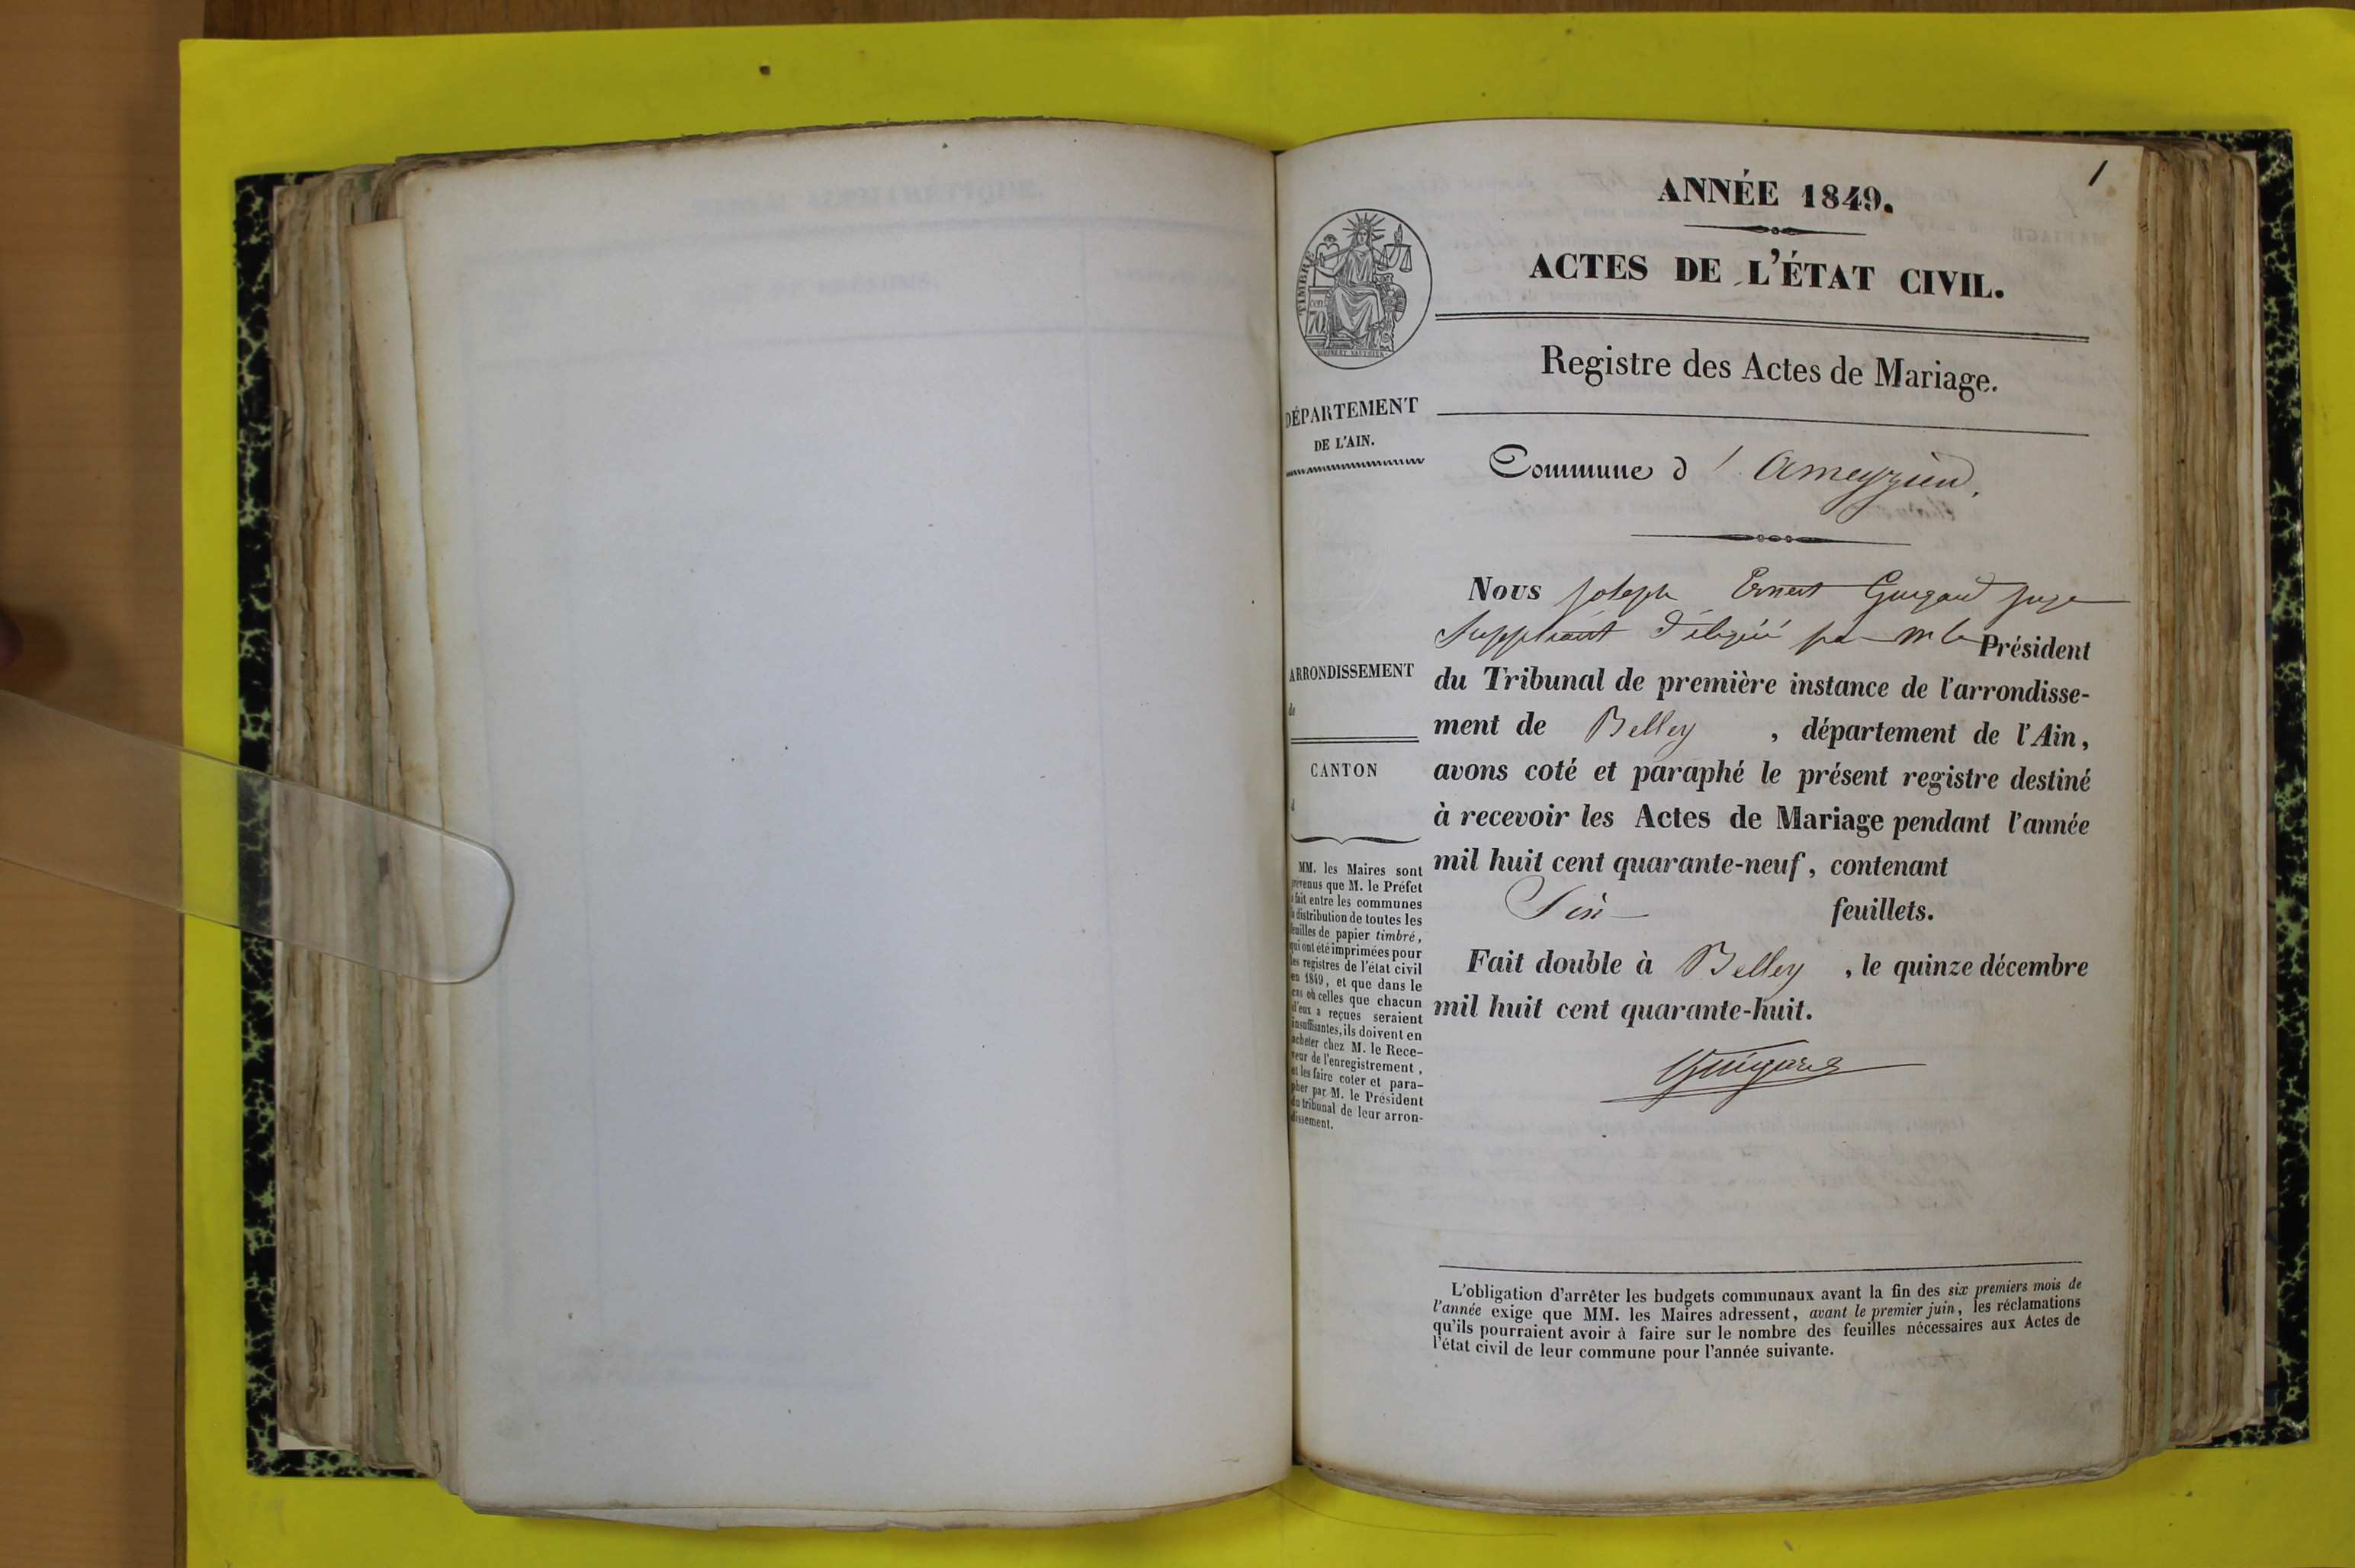 1
ANNÉE 1849.
ACTES DE L'ÉTAT CIVIL.
Registre des Actes de Mariage.
TIMBRE
70
DÉPARTEMENT
DE L'AIN.
Commune d' Ameyzieu.
Nous Joseph Ernest Guigard juge
Suppléant délégué par m le Président
du Tribunal de première instance de l'arrondisse-
ment de Belley , département de l'Ain,
avons coté et paraphé le présent registre destiné
à recevoir les Actes de Mariage pendant l'année
mil huit cent quarante-neuf, contenant
Six feuillets.
Fait double à Belley , le quinze décembre
mil huit cent quarante-huit.
ARRONDISSEMENT
de
CANTON
d
MM. les Maires sont
prévenus que M. le Préfet
a fait entre les communes
la distribution de toutes les
feuilles de papier timbré,
qui ont été imprimées pour
les registres de l'état civil
en 1849, et que dans le
cas où celles que chacun
d'eux a reçues seraient
insuffisantes, ils doivent en
acheter chez M. le Rece-
veur de l'enregistrement,
et les faire coter et para-
pher par M. le Président
du tribunal de leur arron-
dissement.
L'obligation d'arrêter les budgets communaux avant la fin des six premiers mois de
l'année exige que MM. les Maires adressent, avant le premier juin, les réclamations
qu'ils pourraient avoir à faire sur le nombre des feuilles nécessaires aux Actes de
l'état civil de leur commune pour l'année suivante.